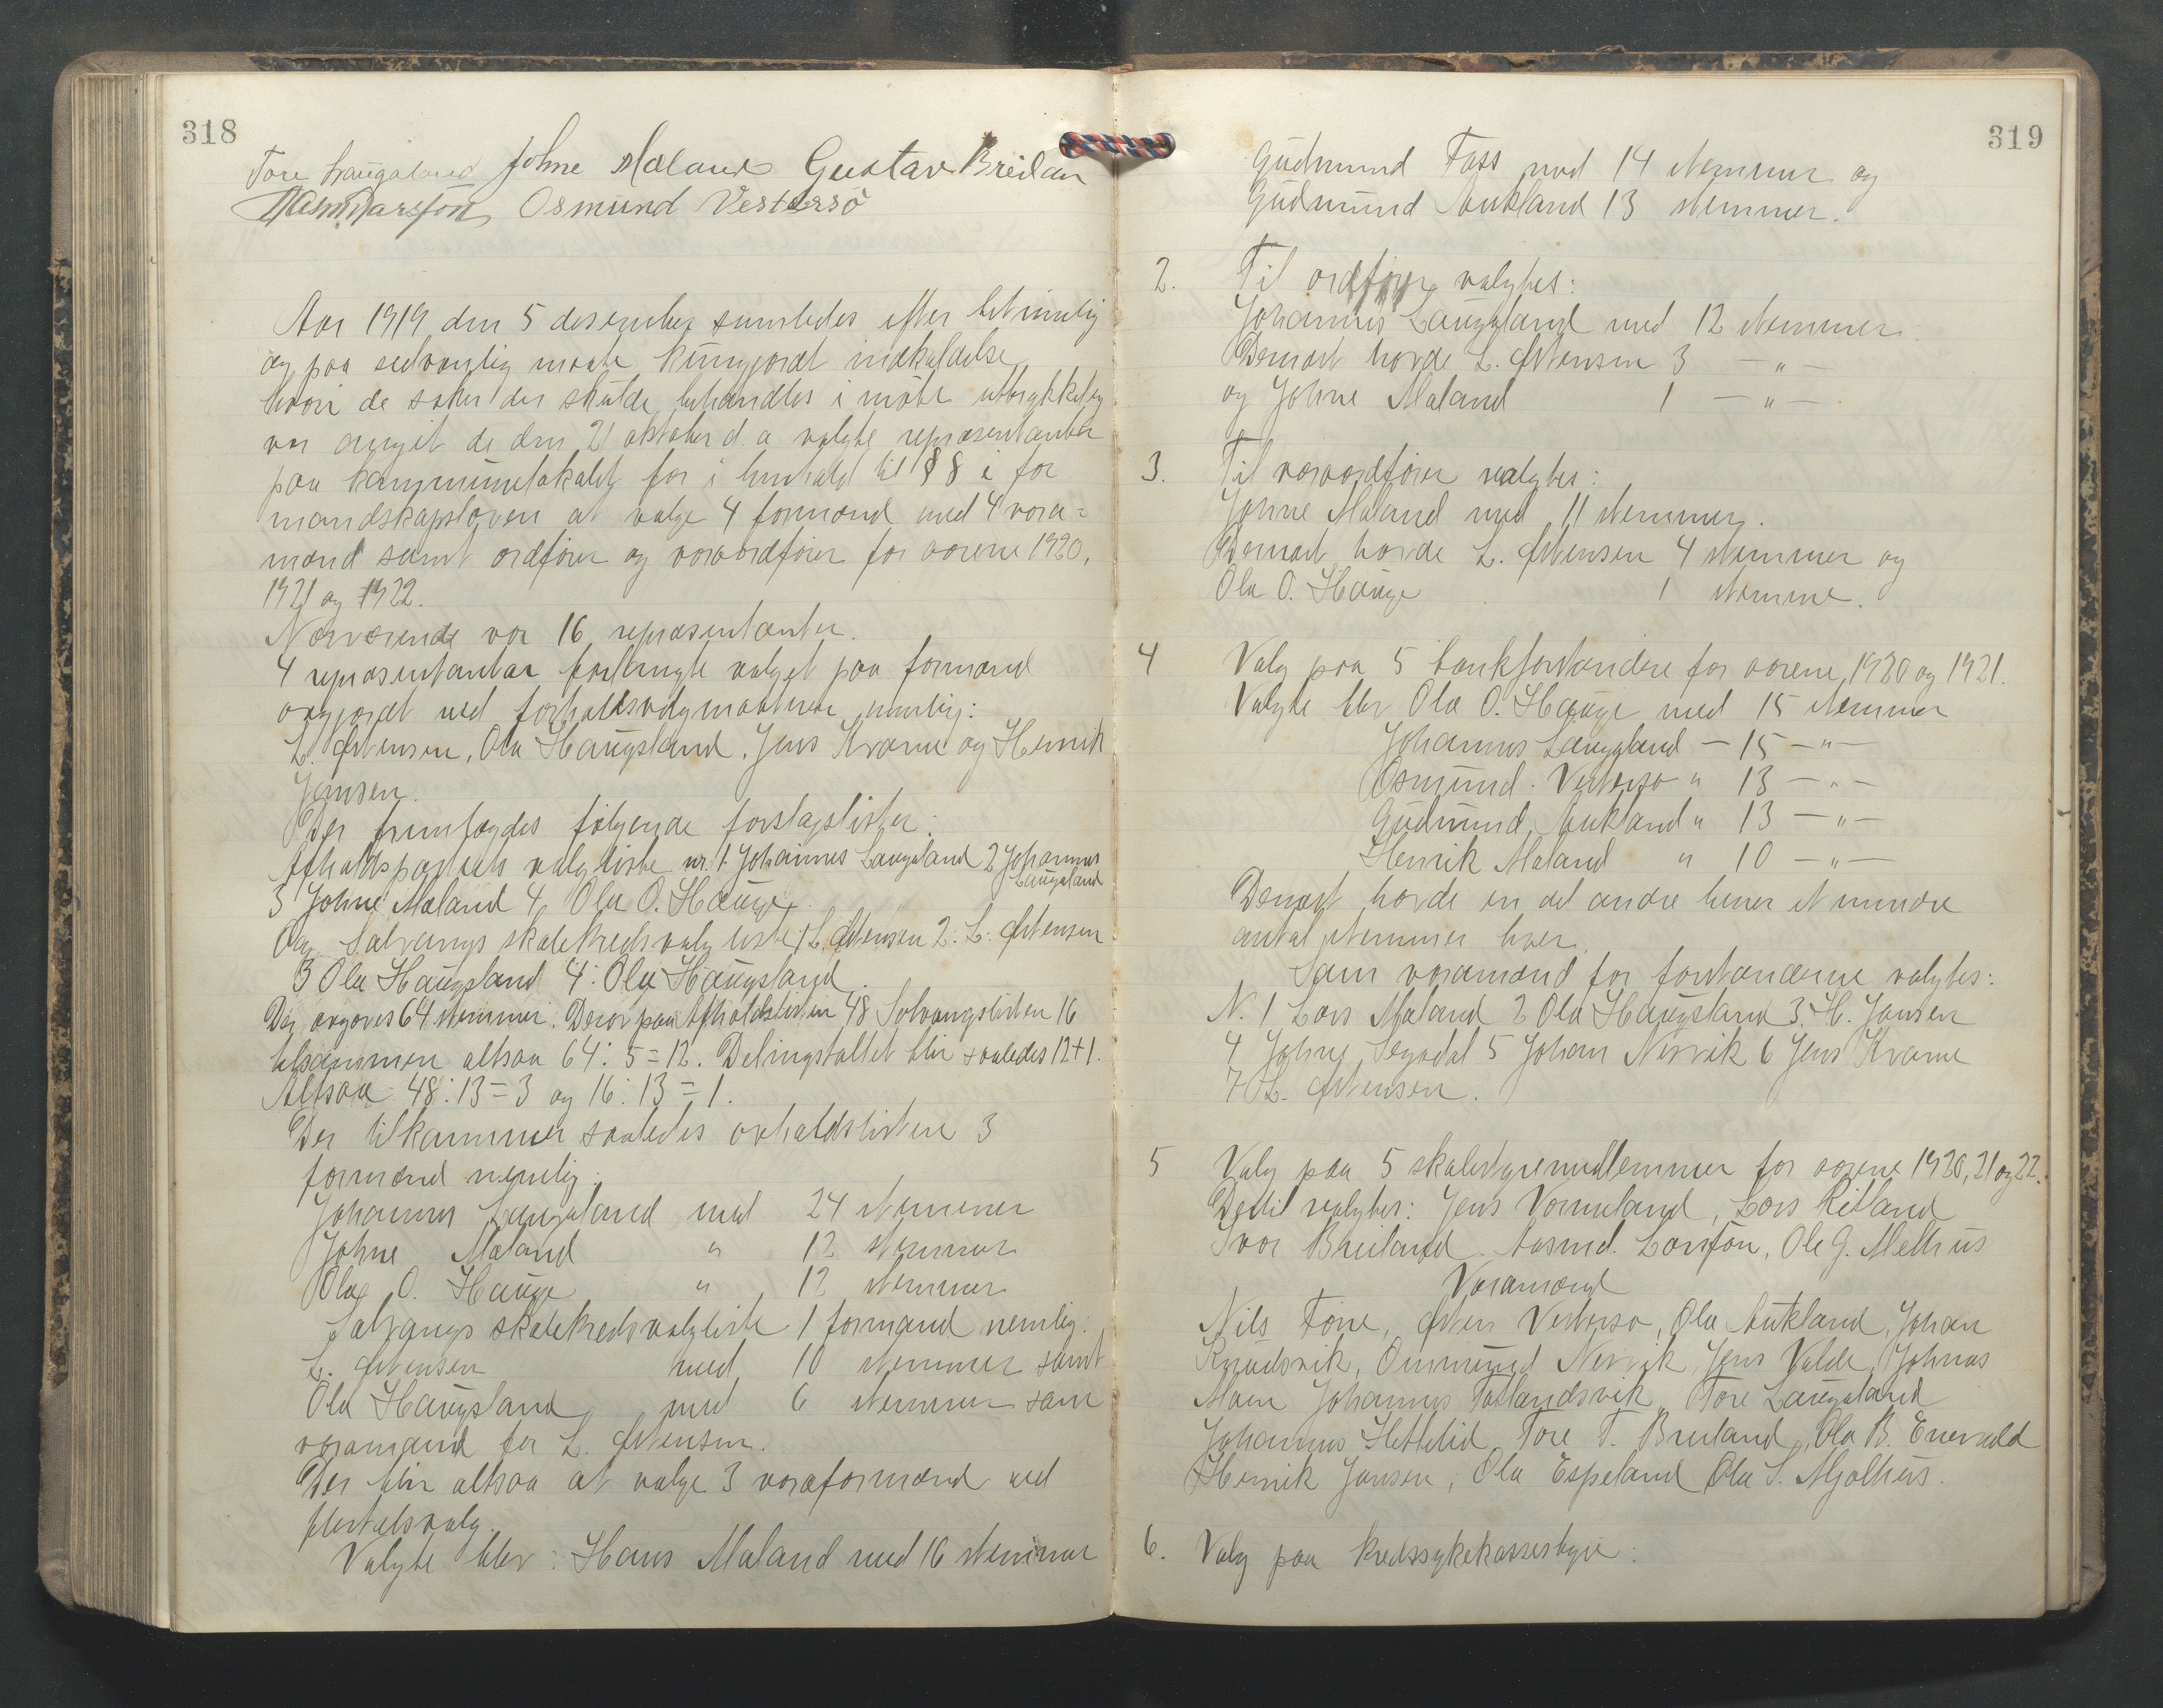 318
Tore Laugaland Johne Mæland Gustav Breilan
Osmund Vestersö
Aar 1919 den 5 desember samledes efter betimelig
og paa sedvanlig maate kungjordt indkaldelse
hvori de saker der skulde behandles i møte uttrykkelig
var angit de den 21 oktober d. a valgte representanter
paa kommunelokalet for i henhold til § 8 i for
mandskapsloven at vælge 4 formænd med 4 vara=
mænd samt ordfører og varaordfører for aarene 1920,
1921 og 1922.
Nærværende var 16 repræsentanter.
4 repræsentanter forlangte valget paa formænd
avgjordt ved forholdsvalgmaaten nemlig:
L. Østensen, Ola Haugsland, Jens Kvame og Henrik
Jansen.
Der fremlagdes følgende forslagslister:
Afholdspartiets valgliste nr. 1 Johannes Laugaland 2 Johannes
Laugaland
3 Johne Mæland 4 Ola O. Hauge.
Og Solvangs skolekredsvalgliste 1 L. Østensen 2. L. Østensen
3 Ola Haugsland 4. Ola Haugsland.
Der avgaves 64 stemmer. Derav paa Afholdslisten 48 Solvangslisten 16
tilsammen altsaa 64 : 5 = 12. Delingstallet blir saaledes 12+1.
Altsaa 48 : 13 = 3 og 16 : 13 = 1.
Der tilkommer saaledes avholdslisten 3
formænd nemlig:
Johannes Laugaland med 24 stemmer
Johne Mæland " 12 stemmer
Ola O. Hauge " 12 stemmer
Solvangs skolekredsvalgliste 1 formand nemlig:
L. Østensen med 10 stemmer samt
Ola Haugsland med 6 stemmer som
varamand for L. Østensen.
Der blir altsaa at vælge 3 varaformænd ved
flertalsvalg.
Valgte blev: Hans Mæland med 16 stemmer
319
Gudmund Foss med 14 stemmer og
Gudmund Aukland 13 stemmer.
2. Til ordfører valgtes:
Johannes Laugaland med 12 stemmer.
Dernæst havde L. Østensen 3 — " —
og Johne Mæland 1 — " —
3. Til varaordfører valgtes:
Johne Mæland med 11 stemmer.
Dernæst havde L. Østensen 4 stemmer og
Ola O. Hauge 1 stemme.
4 Valg paa 5 bankforstandere for aarene 1920 og 1921.
Valgte blev Ola O. Hauge med 15 stemmer
Johannes Laugaland — 15 — " —
Osmund Vestersø " 13 — " —
Gudmund Aukland " 13 — " —
Henrik Mæland " 10 — " —
Dernæst havde en del andre hener et mindre
antal stemmer hver.
Som varamænd for forstanderne valgtes:
N. 1 Lars Mæland 2 Ola Haugsland 3. H. Jansen
4 Johne Segadal 5 Johan Nesvik 6 Jens Kvame
7 L. Østensen.
5 Valg paa 5 skolestyremedlemmer for aarene 1920, 21 og 22.
Dertil valgtes: Jens Vormeland, Lars Riland
Ivar Breiland. Aasmd. Larsson, Ole G. Melhus
Varamænd
Nils Tone, Østen Vestersø, Ola Aukland, Johan
Knudsvik, Ommund Nesvik, Jens Valde, Johnas
Moen Johannes Tøtlandsvik, Tore Laugaland
Johannes Hettelid Tore T. Breiland, Ola B. Enersvold
Henrik Jansen, Ola Espeland Ola S. Mjølhus.
6. Valg paa kredssykekassestyre: